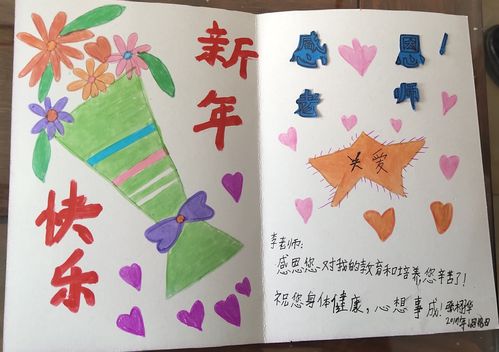 新年
快乐
感恩!
老师
关爱
李老师:
感恩您对我的教育和培养,您辛苦了!
祝您身体健康,心想事成!